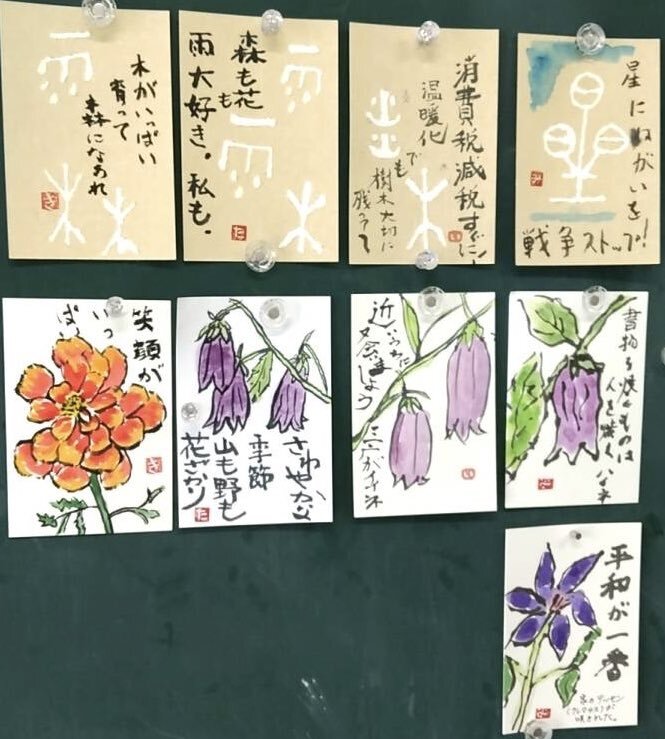 木がいっぱい
育って
森になあれ
森も花も
雨大好き。私も。
た
消費税減税すぐに!
温暖化でも
樹木大切に
い
星にねがいを
戦争ストップ!
み
笑顔が
いっ
ぱい
さわやかな
季節
山も野も
花ざかり
た
近いうちに
い
書物を焼くものは
人を焼く ハイネ
平和が一番
家のテッセン
(クレマチス)が
咲きました。